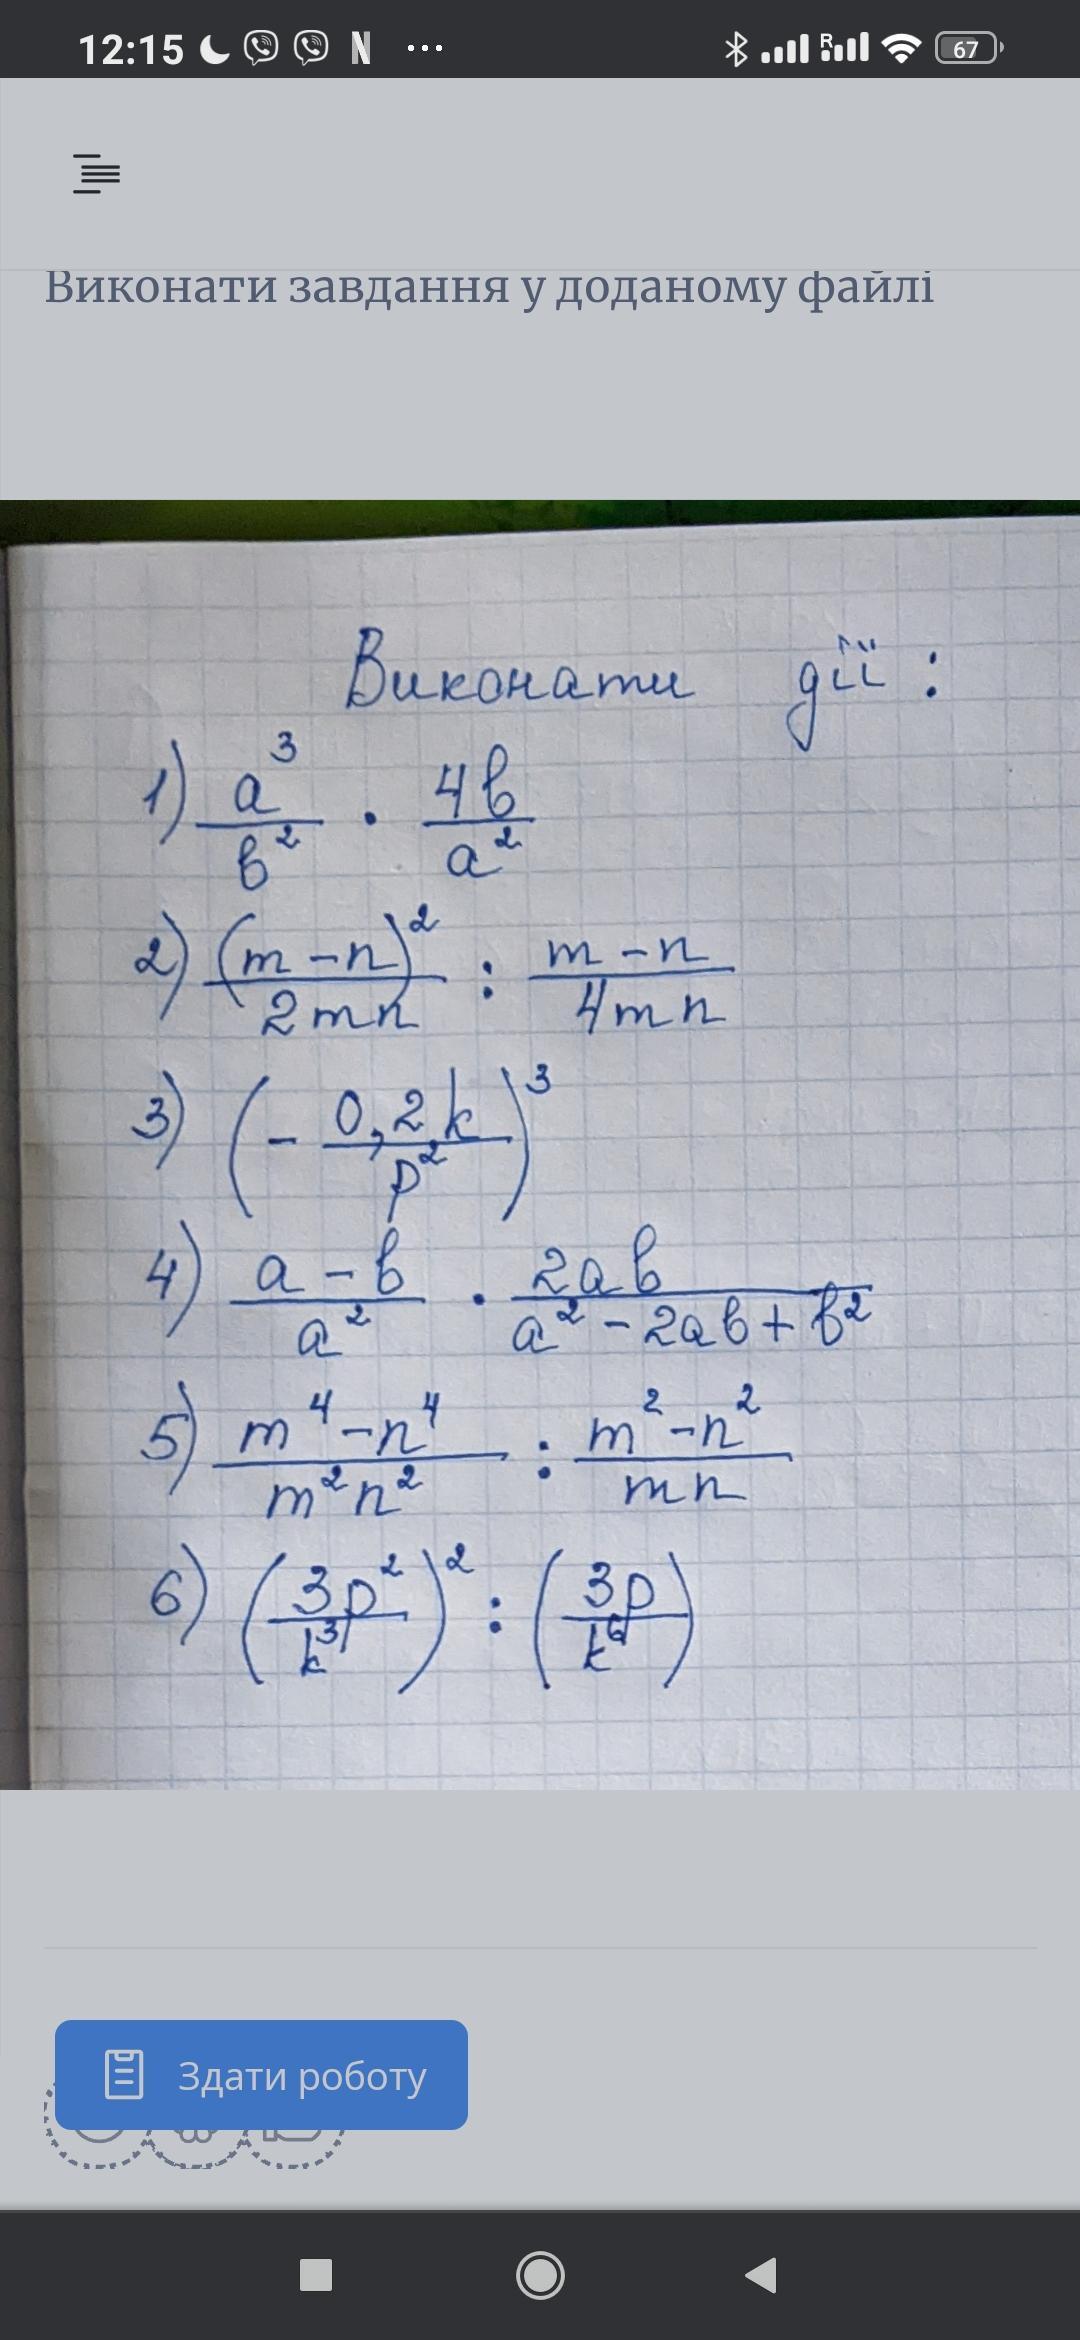 12:15 N ... R 67
Виконати завдання у доданому файлі
Виконати дії :
1) a³/b² · 4b/a²
2) (m-n)²/2mn : m-n/4mn
3) (- 0,2k/p²)³
4) a-b/a² · 2ab/a²-2ab+b²
5) m⁴-n⁴/m²n² : m²-n²/mn
6) (3p²/k³)² : (3p/k⁶)
Здати роботу